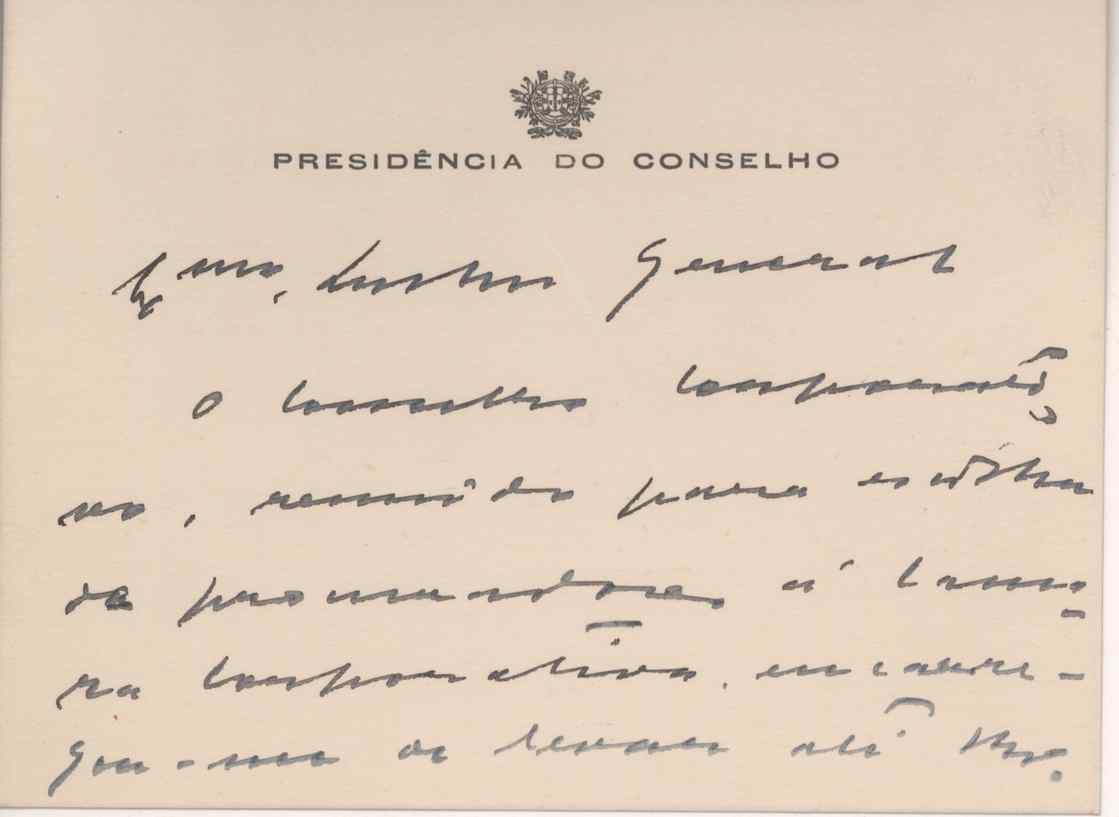 PRESIDÊNCIA DO CONSELHO
Exmo. Senhor General
O Conselho Corporati-
vo, reunido para escolha
de procuradores à Câma-
ra Corporativa, encarre-
gou-me de levar até